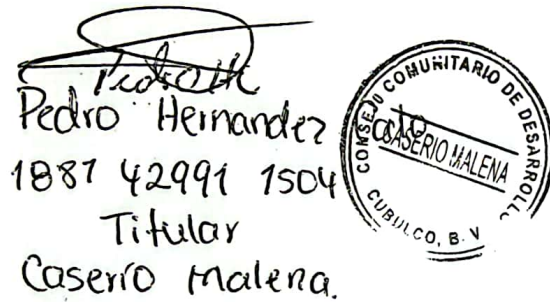 Pedro H
Pedro Hernandez
1887 42991 1504
Titular
Caserío Malena.
CONSEJO COMUNITARIO DE DESARROLLO
CASERIO MALENA
CUBULCO, B. V